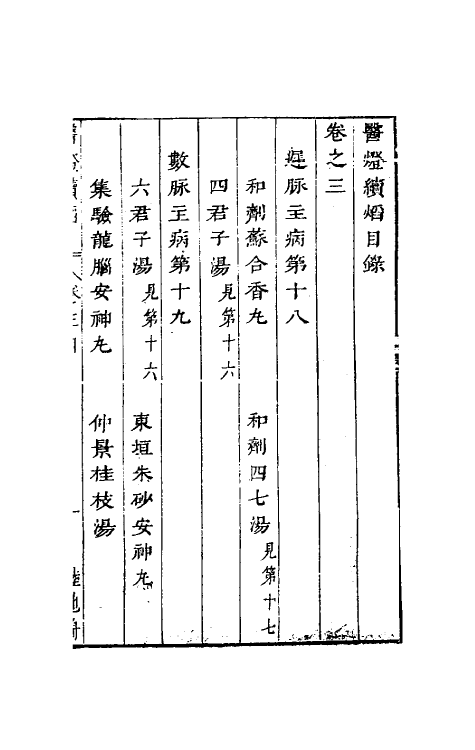 醫燈續焰目錄
卷之三
遲脉主病第十八
和劑蘇合香丸 和劑四七湯見第十七
四君子湯見第十六
數脉主病第十九
六君子湯見第十六 東垣朱砂安神丸
集驗龍腦安神丸 仲景桂枝湯